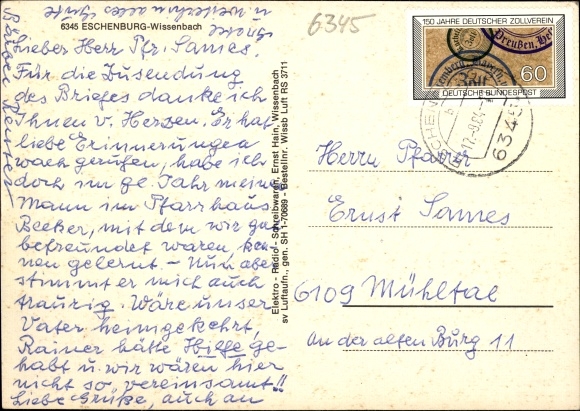 6345 ESCHENBURG-Wissenbach
6345
Lieber Herr Pfr. Sames.
Für die Zusendung
des Briefes danke ich
Ihnen v. Herzen. Er hat
liebe Erinnerungen
wach gerufen, habe ich
doch im ge. Jahr meinen
Mann im Pfarrhaus
Becker, mit dem wir gu
befreundet waren ken-
nen gelernt - Nun aber
stimmt er mich auch
traurig. Wäre unser
Vater heimgekehrt,
Rainer hätte Hilfe ge-
habt u. wir wären hier
nicht so vereinsamt!!
Liebe Grüße, auch an
u. weiterhin alles Gute
Elektro - Radio - Schreibwaren, Ernst Hain, Wissenbach
sv Luftaufn., gen. SH 1-70689 - Bestellnr. Wissb Luft RS 3711
150 JAHRE DEUTSCHER ZOLLVEREIN
Preußen,
60
DEUTSCHE BUNDESPOST
6345
Herrn Pfarrer
Ernst Sames
6109 Mühltal
An der alten Burg 11